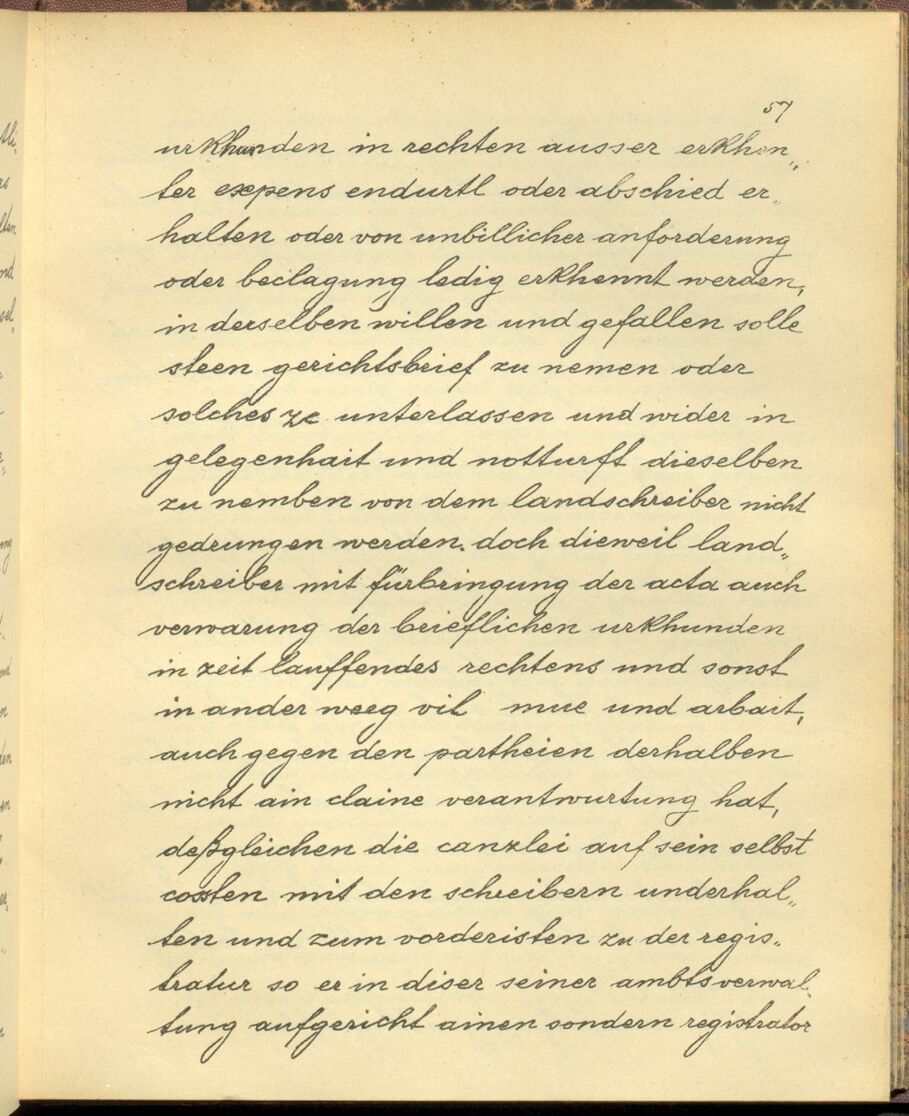 57
urkhunden in rechten ausser erkhen„
ter expens endurtl oder abschied er„
halten oder von unbillicher anforderung
oder beclagung ledig erkhennt werden,
in derselben willen und gefallen solle
steen gerichtsbrief zu nemen oder
solches ze unterlassen und wider in
gelegenhait und notturft dieselben
zu nemben von dem landschreiber nicht
gedrungen werden. doch dieweil land„
schreiber mit fürbringung der acta auch
verwarung der brieflichen urkhunden
in zeit lauffendes rechtens und sonst
in ander weeg vil mue und arbait,
auch gegen den partheien derhalben
nicht ain claine verantwurtung hat,
deßgleichen die canzlei auf sein selbst
cossten mit den schreibern underhal„
ten und zum vorderisten zu der regis„
tratur so er in diser seiner ambtsverwal„
tung aufgericht ainen sondern registrator